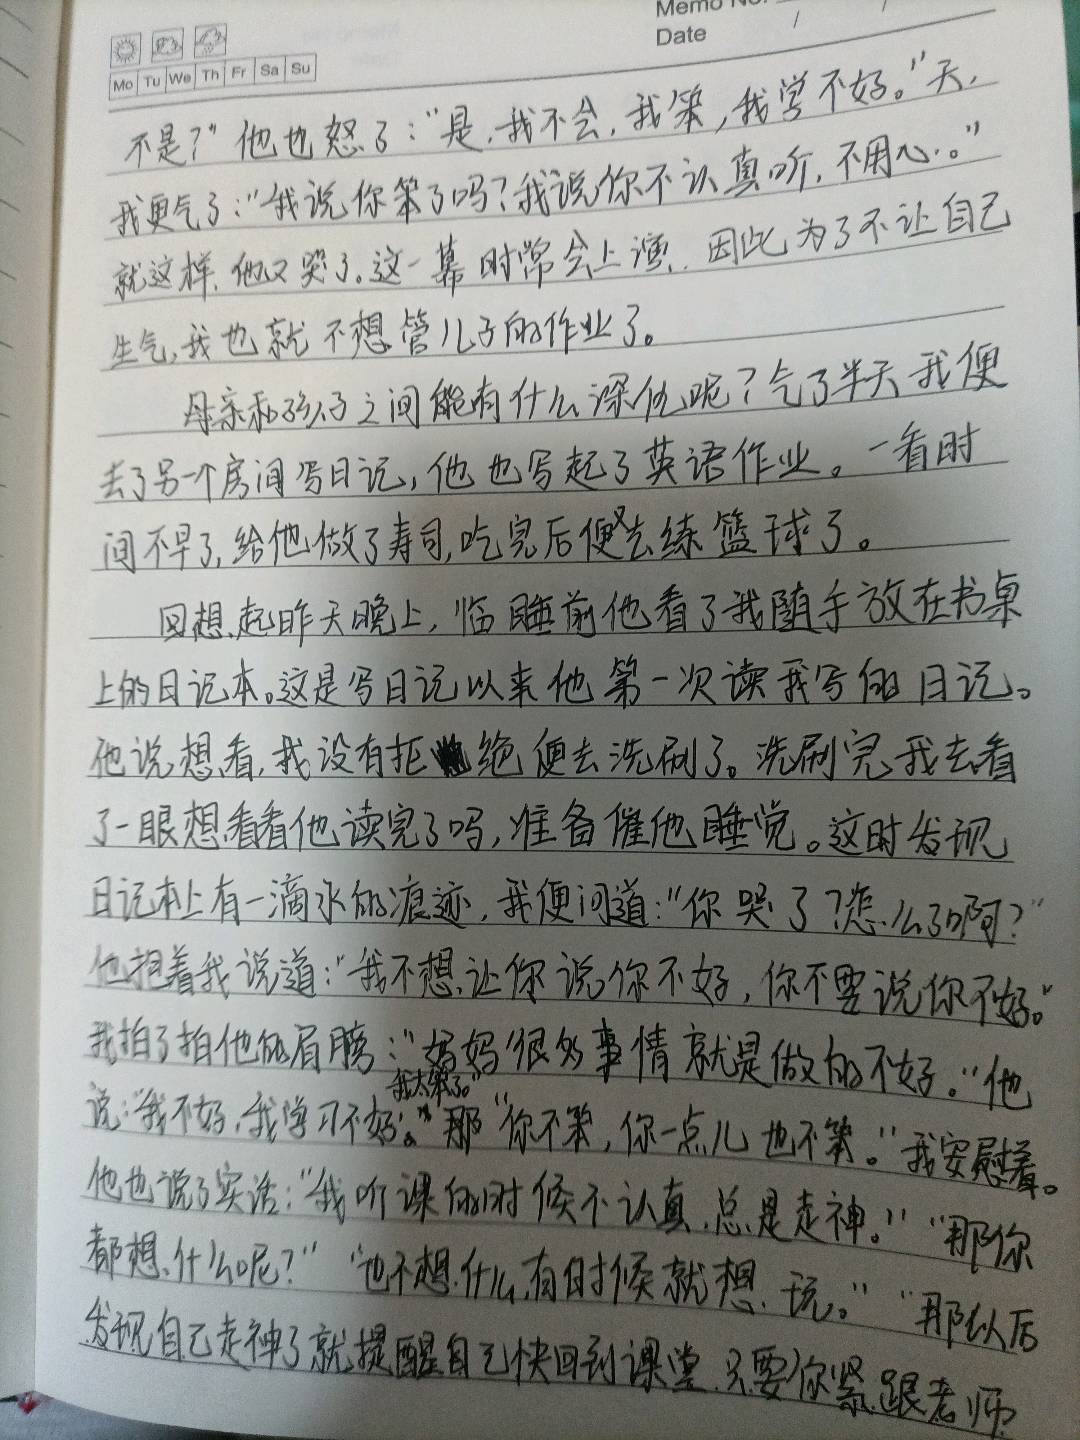 Memo No.
Date / /
Mo Tu We Th Fr Sa Su
不是？”他也怒了：“是，我不会，我笨，我学不好。”天，
我更气了：“我说你笨了吗？我说你不认真听，不用心。”
就这样，他又哭了。这一幕时常会上演，因此为了不让自己
生气，我也就不想管儿子的作业了。
母亲和孩子之间能有什么深仇呢？气了半天我便
去了另一个房间写日记，他也写起了英语作业。一看时
间不早了，给他做了寿司，吃完后便又去练篮球了。
回想起昨天晚上，临睡前他看了我随手放在书桌
上的日记本。这是写日记以来他第一次读我写的日记。
他说想看，我没有拒绝便去洗刷了。洗刷完我去看
了一眼想看看他读完了吗，准备催他睡觉。这时发现
日记本上有一滴水的痕迹，我便问道：“你哭了？怎么了啊？”
他抱着我说道：“我不想让你说你不好，你不要说你不好。”
我拍了拍他的肩膀：“妈妈很多事情就是做的不好。”他
说：“我不好，我学习不好，我太笨了。”那“你不笨，你一点儿也不笨。”我安慰着。
他也说了实话：“我听课的时候不认真，总是走神。”“那你
都想什么呢？”“也不想什么，有时候就想玩。”“那以后
发现自己走神了就提醒自己快回到课堂，只要你紧跟老师